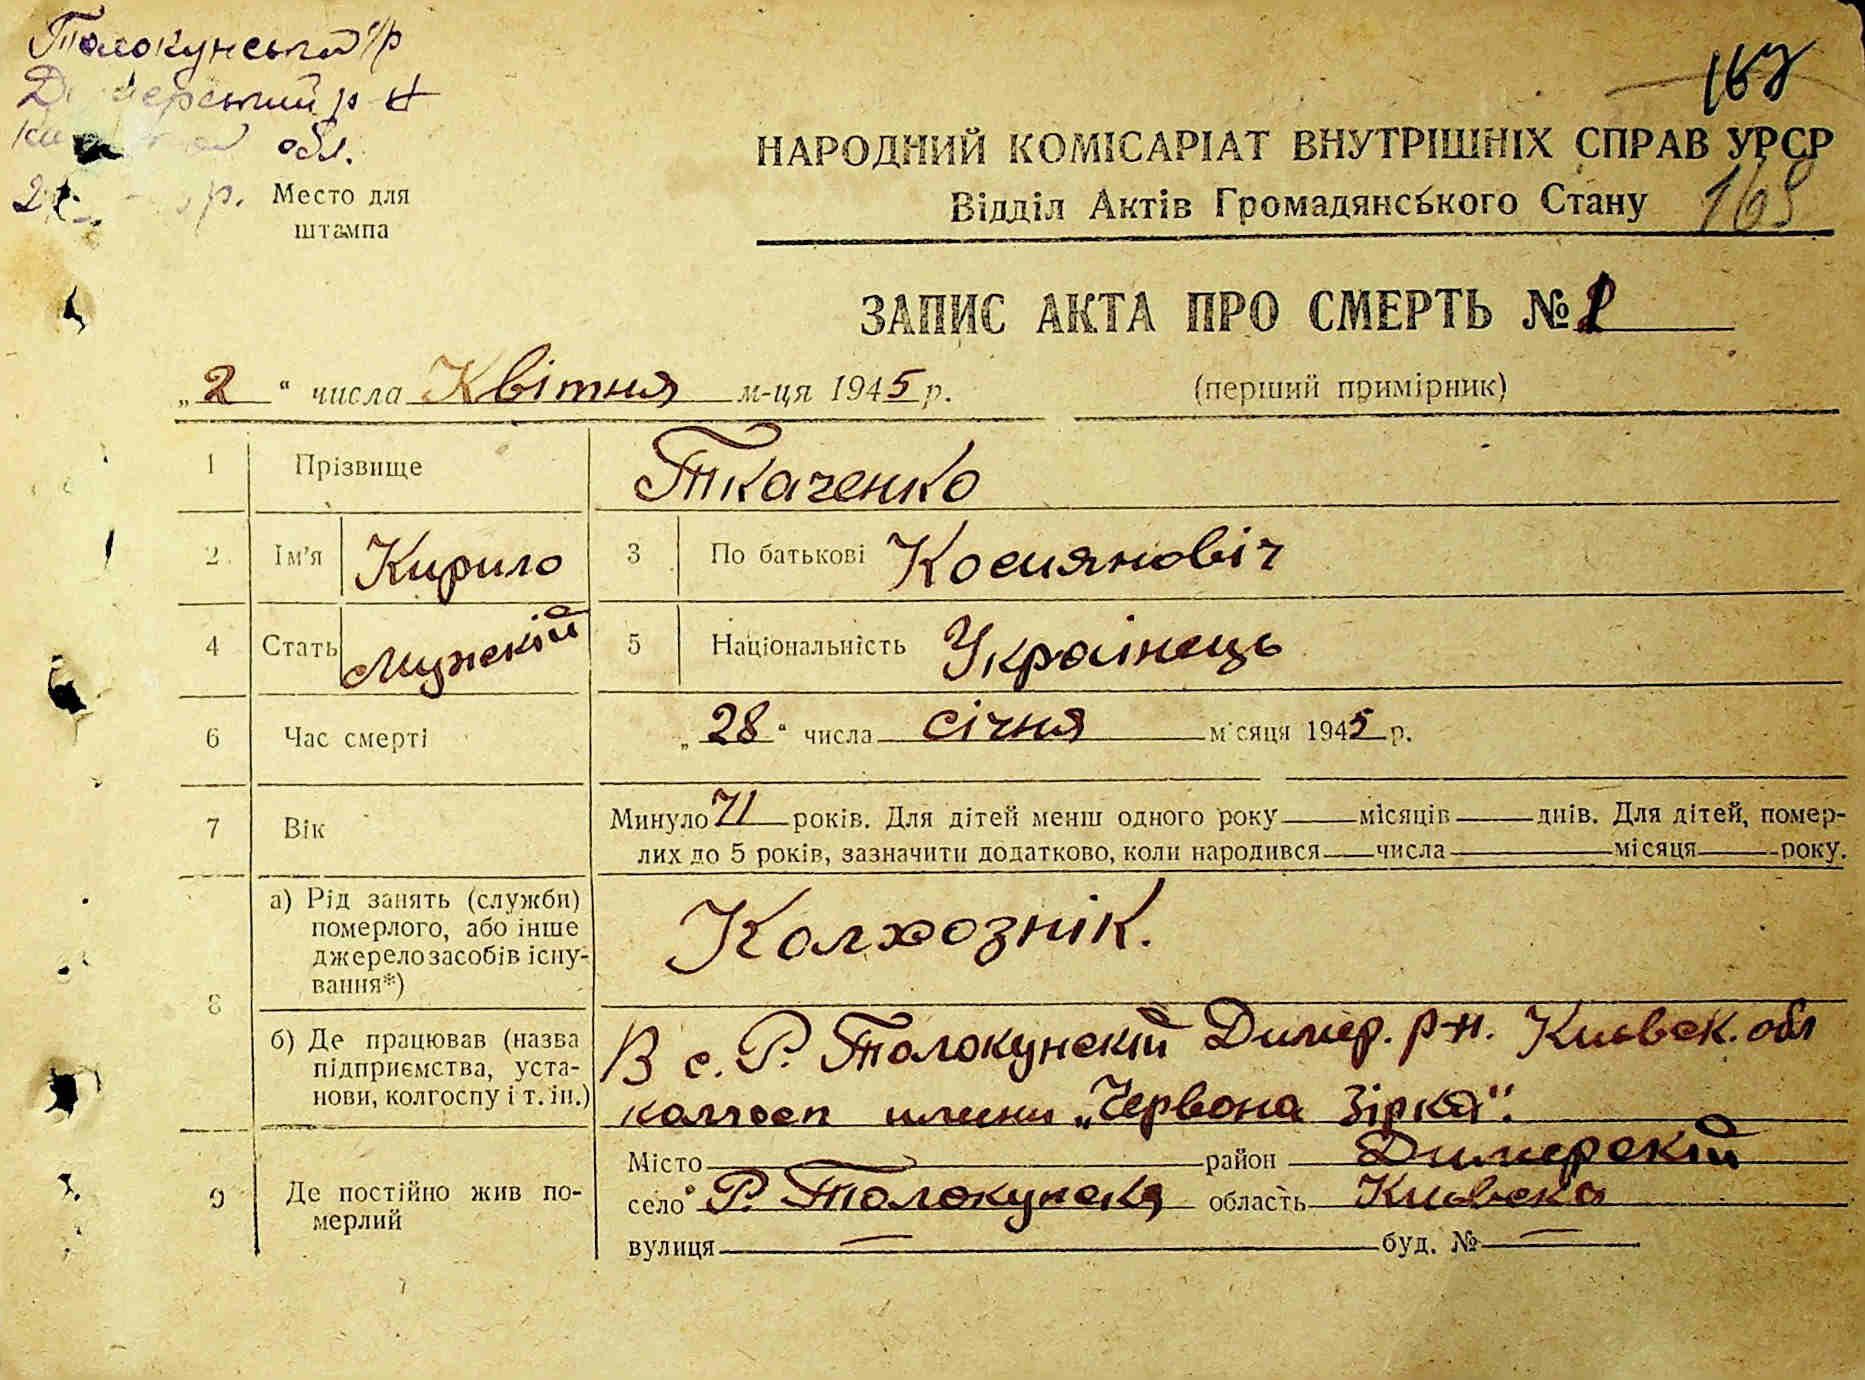 Толокунський с/р
Димерський р-н
обл.
р.
Место для
штампа
167
НАРОДНИЙ КОМІСАРІАТ ВНУТРІШНІХ СПРАВ УРСР
Відділ Актів Громадянського Стану
168
ЗАПИС АКТА ПРО СМЕРТЬ №
„2“ числа Квітня м-ця 1945 р.
(перший примірник)
1 Прізвище Ткаченко
2 Ім'я Кирило 3 По батькові Косиянобіч
4 Стать Мужскій 5 Національність Українець
6 Час смерті „28“ числа січня місяця 1945 р.
7 Вік Минуло 71 років. Для дітей менш одного року місяців днів. Для дітей, помер-
лих до 5 років, зазначити додатково, коли народився числа місяця року.
8 а) Рід занять (служби)
померлого, або інше
джерело засобів існу-
вання*)
Колхознік.
б) Де працював (назва
підприємства, уста-
нови, колгоспу і т. ін.)
В с. Р. Толокунскій Димер. р-н. Киівск. обл
колгосп имени „Червона Зірка".
9 Де постійно жив по-
мерлий
Місто район Димерскій
село Р. Толокунска область Киівска
вулиця — буд. № —